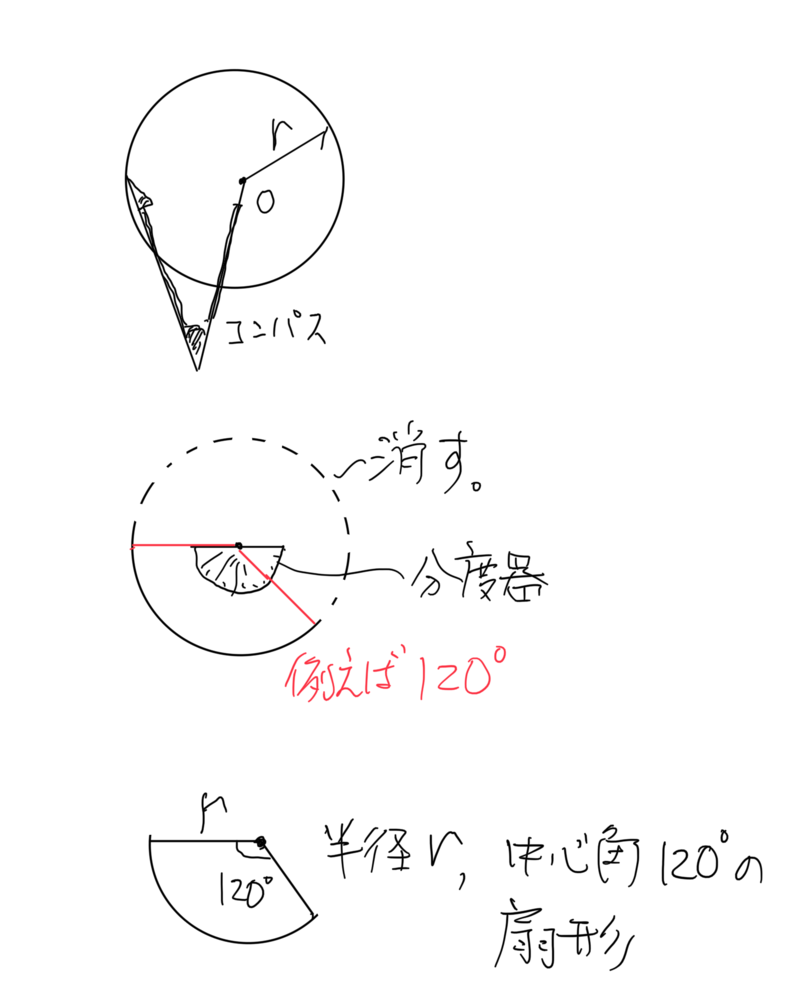 r
O
コンパス
消す。
分度器
例えば120°
r
120°
半径r, 中心角120°の
扇形